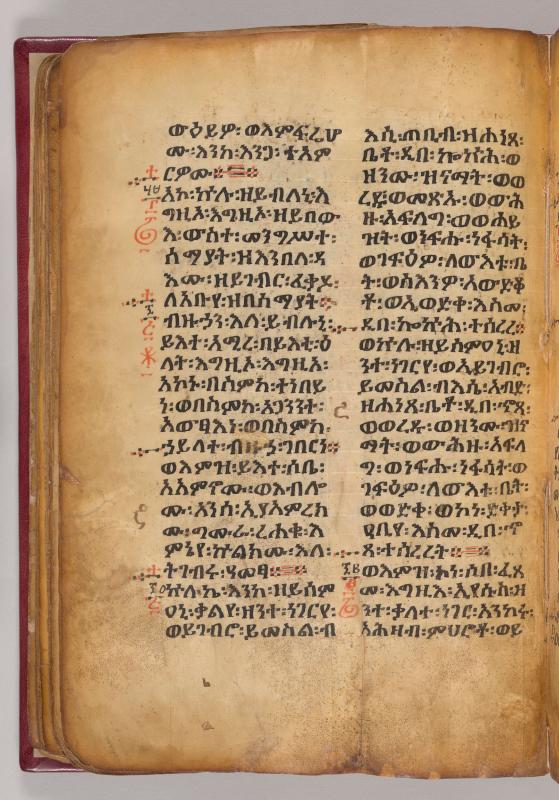 ውዕይዎ፡ ወእምፍሬሆ
ሙ፡ እንከ፡ እንጋ፡ ታእም
ርዎሙ።
አኮ፡ ኵሉ፡ ዘይብለኒ፡ እ
ግዚኦ፡ እግዚኦ፡ ዘይበው
እ፡ ውስተ፡ መንግሥተ፡
ሰማያት፡ ዝእንበለ፡ ዳ
እሙ፡ ዘይገብር፡ ፈቃደ፡
ለአቡየ፡ ዘበሰማያት።
ብዙኃን፡ እለ፡ ይብሉኒ፡
ይእተ፡ አሚረ፡ በይእቲ፡ ዕ
ለት፡ እግዚኦ፡ እግዚኦ፡
አኮኑ፡ በስምከ፡ ተነበይ
ነ፡ ወበስምከ፡ አጋንንተ፡
አውፃእነ፡ ወበስምከ፡
ኃይላተ፡ ብዙኃ፡ ገበርነ።
ወእምዝ፡ ይእተ፡ ሰቤ፡
አአምኖሙ፡ ወእብሎ
ሙ፡ እንሰ፡ ኢያአምረክ
ሙ፡ ግሙራ፡ ረሐቁ፡ እ
ምኔየ፡ ኵልክሙ፡ እለ፡
ትገብሩ፡ ዓመፃ።
ኵሉኬ፡ እንከ፡ ዘይሰም
ዐኒ፡ ቃልየ፡ ዘንተ፡ ነገርየ፡
ወይገብሮ፡ ይመስል፡ ብ
እሲ፡ ጠቢብ፡ ዘሐነጸ፡
ቤቶ፡ ዲበ፡ ኰኵሕ፡ ወ
ዘንሙ፡ ዝናማት፡ ወወ
ረደ፡ ወመጽኡ፡ ወውሕ
ዙ፡ አፍላግ፡ ወወሐይ
ዝት፡ ወነፍሑ፡ ነፋሳት፡
ወገፍዕዎ፡ ለውእቱ፡ ቤ
ት፡ ወስእንዎ፡ ለውድቆ
ቶ፡ ወኢወድቀ፡ እስመ፡
ዲበ፡ ኰኵሕ፡ ተሰረረ።
ወኵሉ፡ ዘይሰምዐኒ፡ ዘ
ንተ፡ ነገርየ፡ ወኢይገብሮ፡
ይመስል፡ ብእሴ፡ አብደ፡
ዘሐነጸ፡ ቤቶ፡ ዲበ፡ ኆጻ፡
ወወረዱ፡ ወዘንሙ፡ ዝና
ማት፡ ወውሕዙ፡ አፍላ
ግ፡ ወነፍሑ፡ ነፋሳት፡ ወ
ገፍዕዎ፡ ለውእቱ፡ ቤት፡
ወወድቀ፡ ወኮነ፡ ድቀቱ፡
ዐቢየ፡ እስመ፡ ዲበ፡ ኆ
ጻ፡ ተሰረረት።
፸፪ ወእምዝ፡ ኮነ፡ ሶበ፡ ፈጸ
መ፡ እግዚእ፡ ኢየሱስ፡ ዘ
ንተ፡ ቃላተ፡ ነገር፡ አንከሩ፡
አሕዛብ፡ ምህሮቶ፡ ወይ